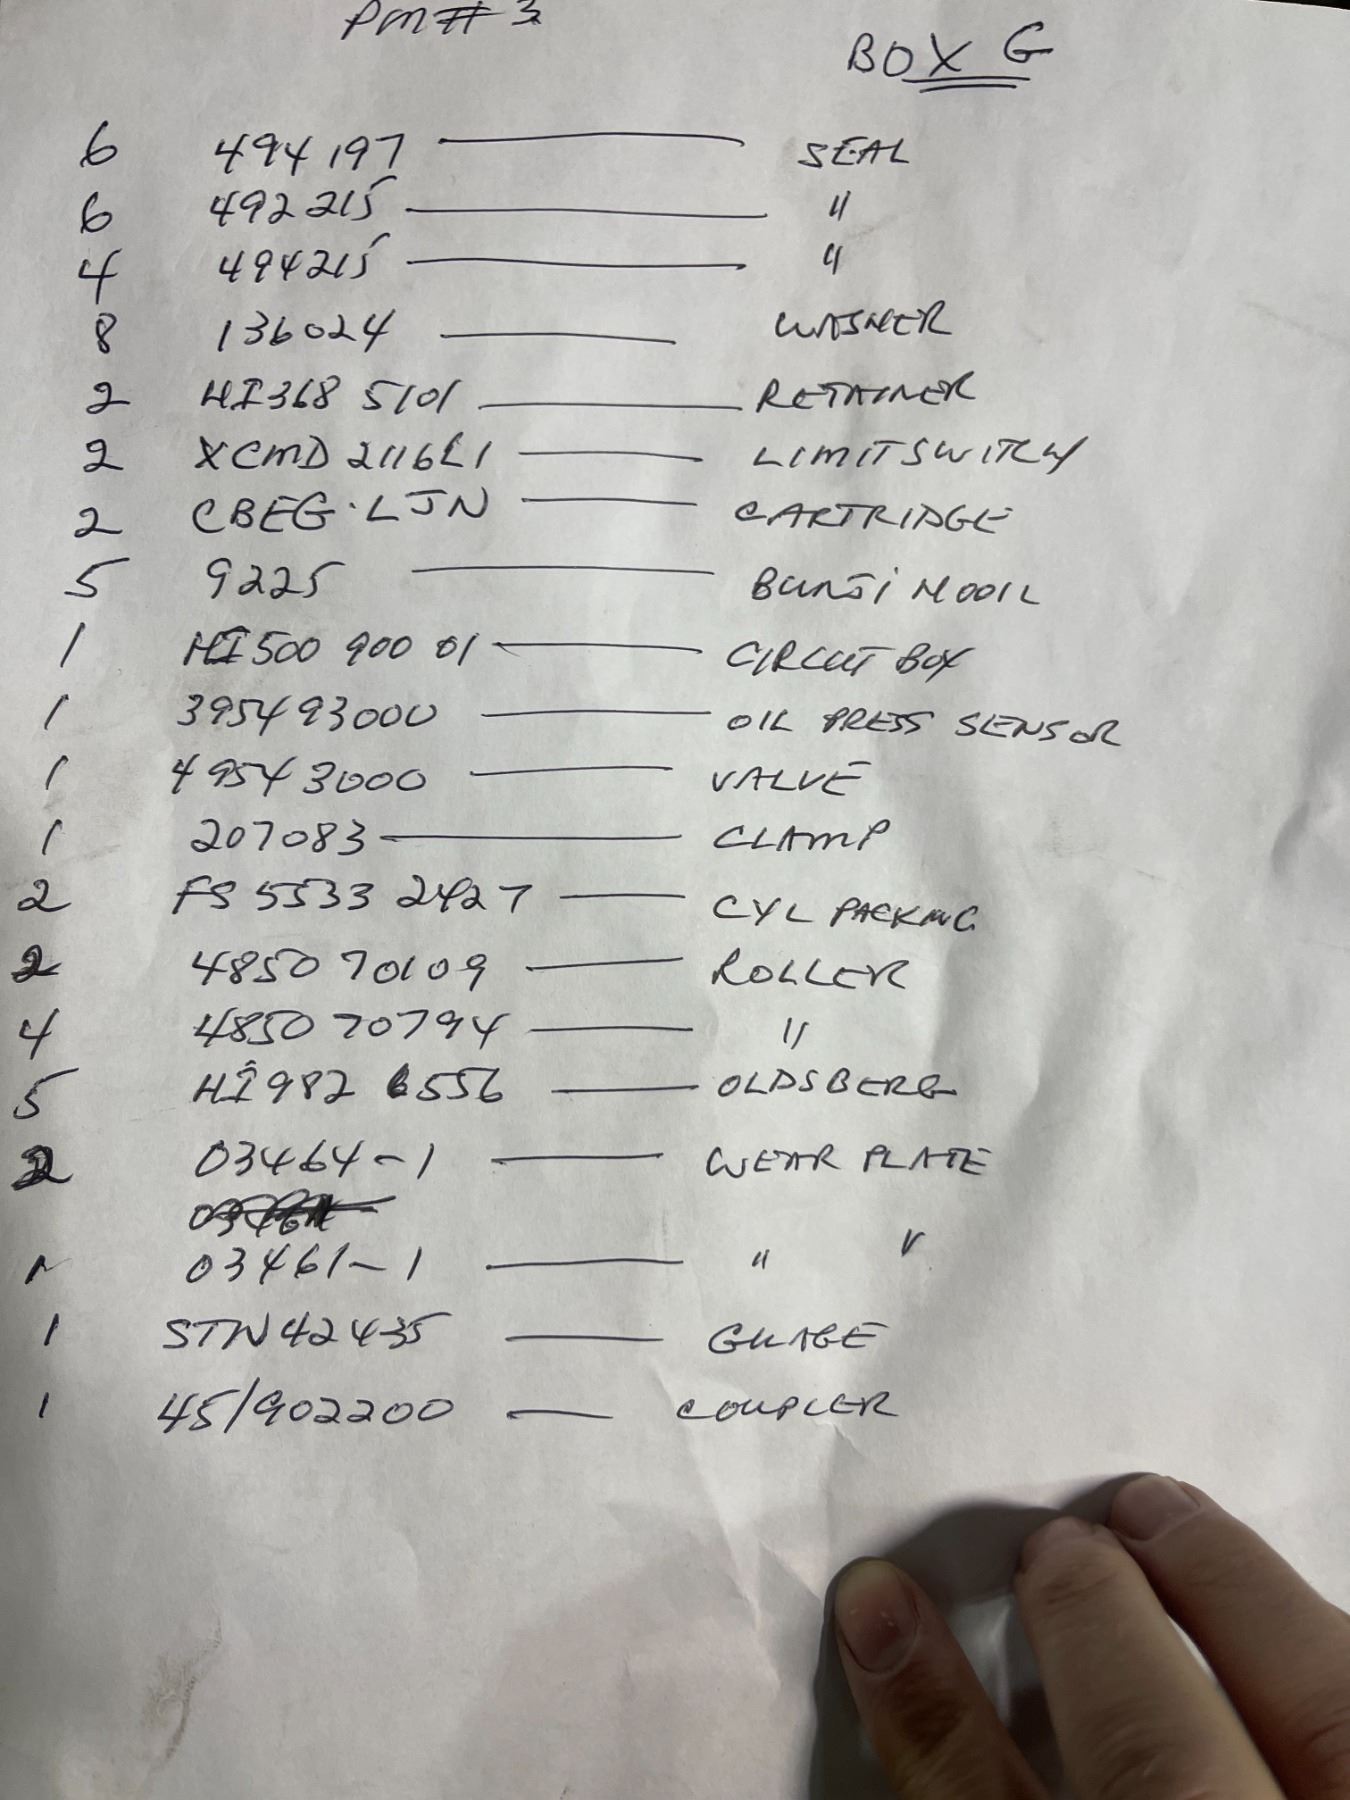 PM# 3
BOX G
6 494197 SEAL
6 492215 "
4 494215 "
8 136024 WASHER
2 HI368 5101 RETAINER
2 XCMD2116L1 LIMIT SWITCH
2 CBEG·LJN CARTRIDGE
5 9225
1 HI500 900 01 CIRCUIT BOX
1 395493000 OIL PRESS SENSOR
1 49543000 VALVE
1 207083 CLAMP
2 FS 5533 2427 CYL PACKING
2 4850 70109 ROLLER
4 4850 70794 "
5 HI982 6556 OLDSBERG
2 03464-1 WEAR PLATE
03461-1 " "
1 STW42435 GUAGE
1 45/902200 COUPLER